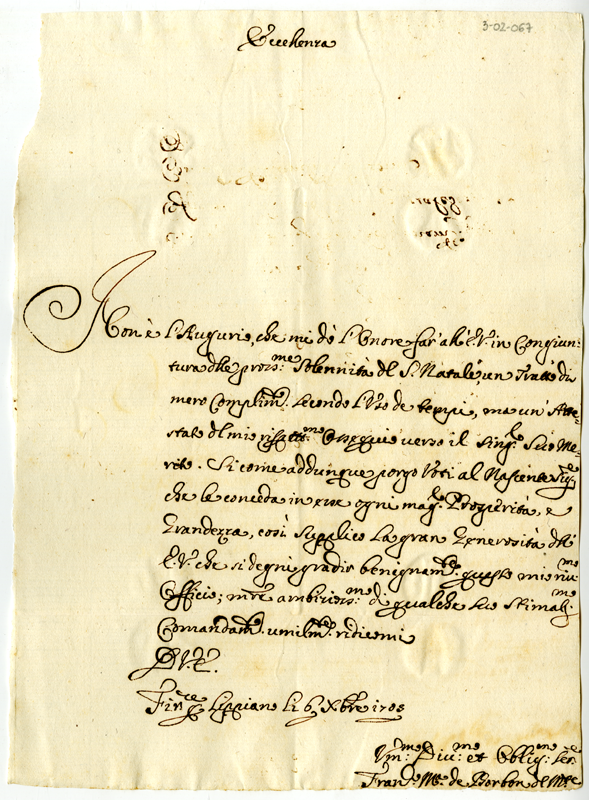 3-02-067
Eccellenza
Non è l'Augurio, che mi dò l'Onore far' all' E.V. in Congiun:
tura delle pross:me Solennità del S. Natale, un Tratto di
mero Complim:to secondo l'Uso de tempi, ma un' Atte-
stato del mio risp:mo Ossequio verso il Sing:r Suo Me-
rito. Si come addunque porgo Voti al Nascente Sig:re
che le conceda in ogni mag:r Prosperità, e
Grandezza, così supplico la gran Generosità dell'
E.V. che si degni gradir benignam:te questo mio riv:mo
Officio; m̃re ambizios:mo di qualche suo Stimat:mo
Comandam:to umilm:te ridicomi
D.V.E.
Lippiano li 6 Xbre 1708
Um:mo Div:mo et Oblig:mo Ser:e
Fran:co M:a de Borbon del M:te